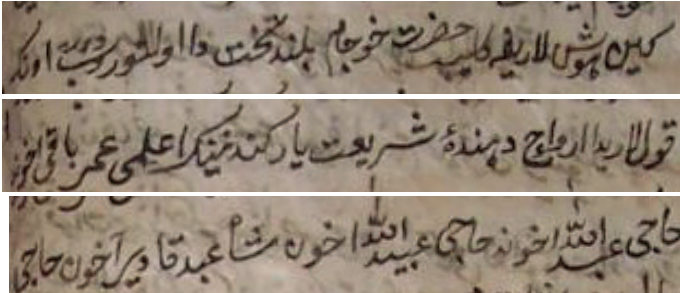 کین هوش لاریغه کلیب حضرت خوجام بلند تخت دا اولتوروب اونک
قول لاریدا ارواج دهندهٔ شریعت یارکند نینک اعلمی عمر باقی اخوند
حاجی عبدالله اخوند حاجی عبیدالله اخون شاه عبدقادیر آخون حاجی